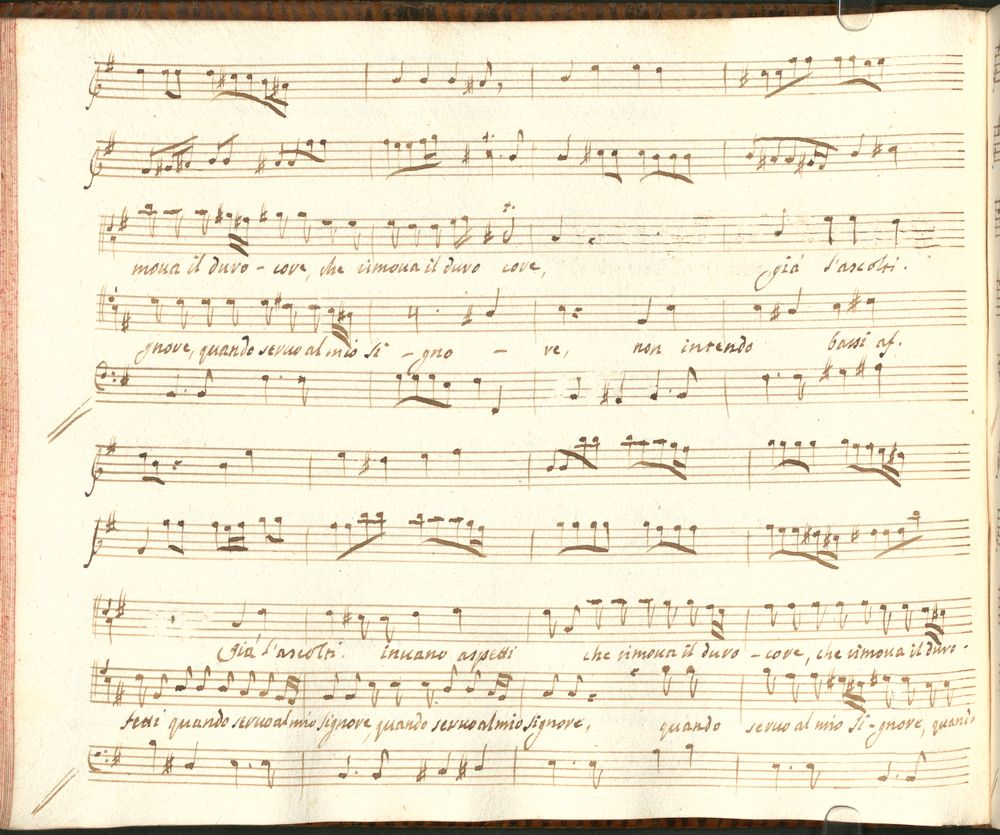 moua il duro - core, che rimoua il duro core, già l'ascolti.
gnore, quando seruo al mio si - gno - re, non intendo bassi af.
Già l'ascolti. inuano aspetti che rimoua il duro - core, che rimoua il duro.
fetti quando seruo al mio signore, quando seruo al mio signore, quando seruo al mio si - gnore, quando